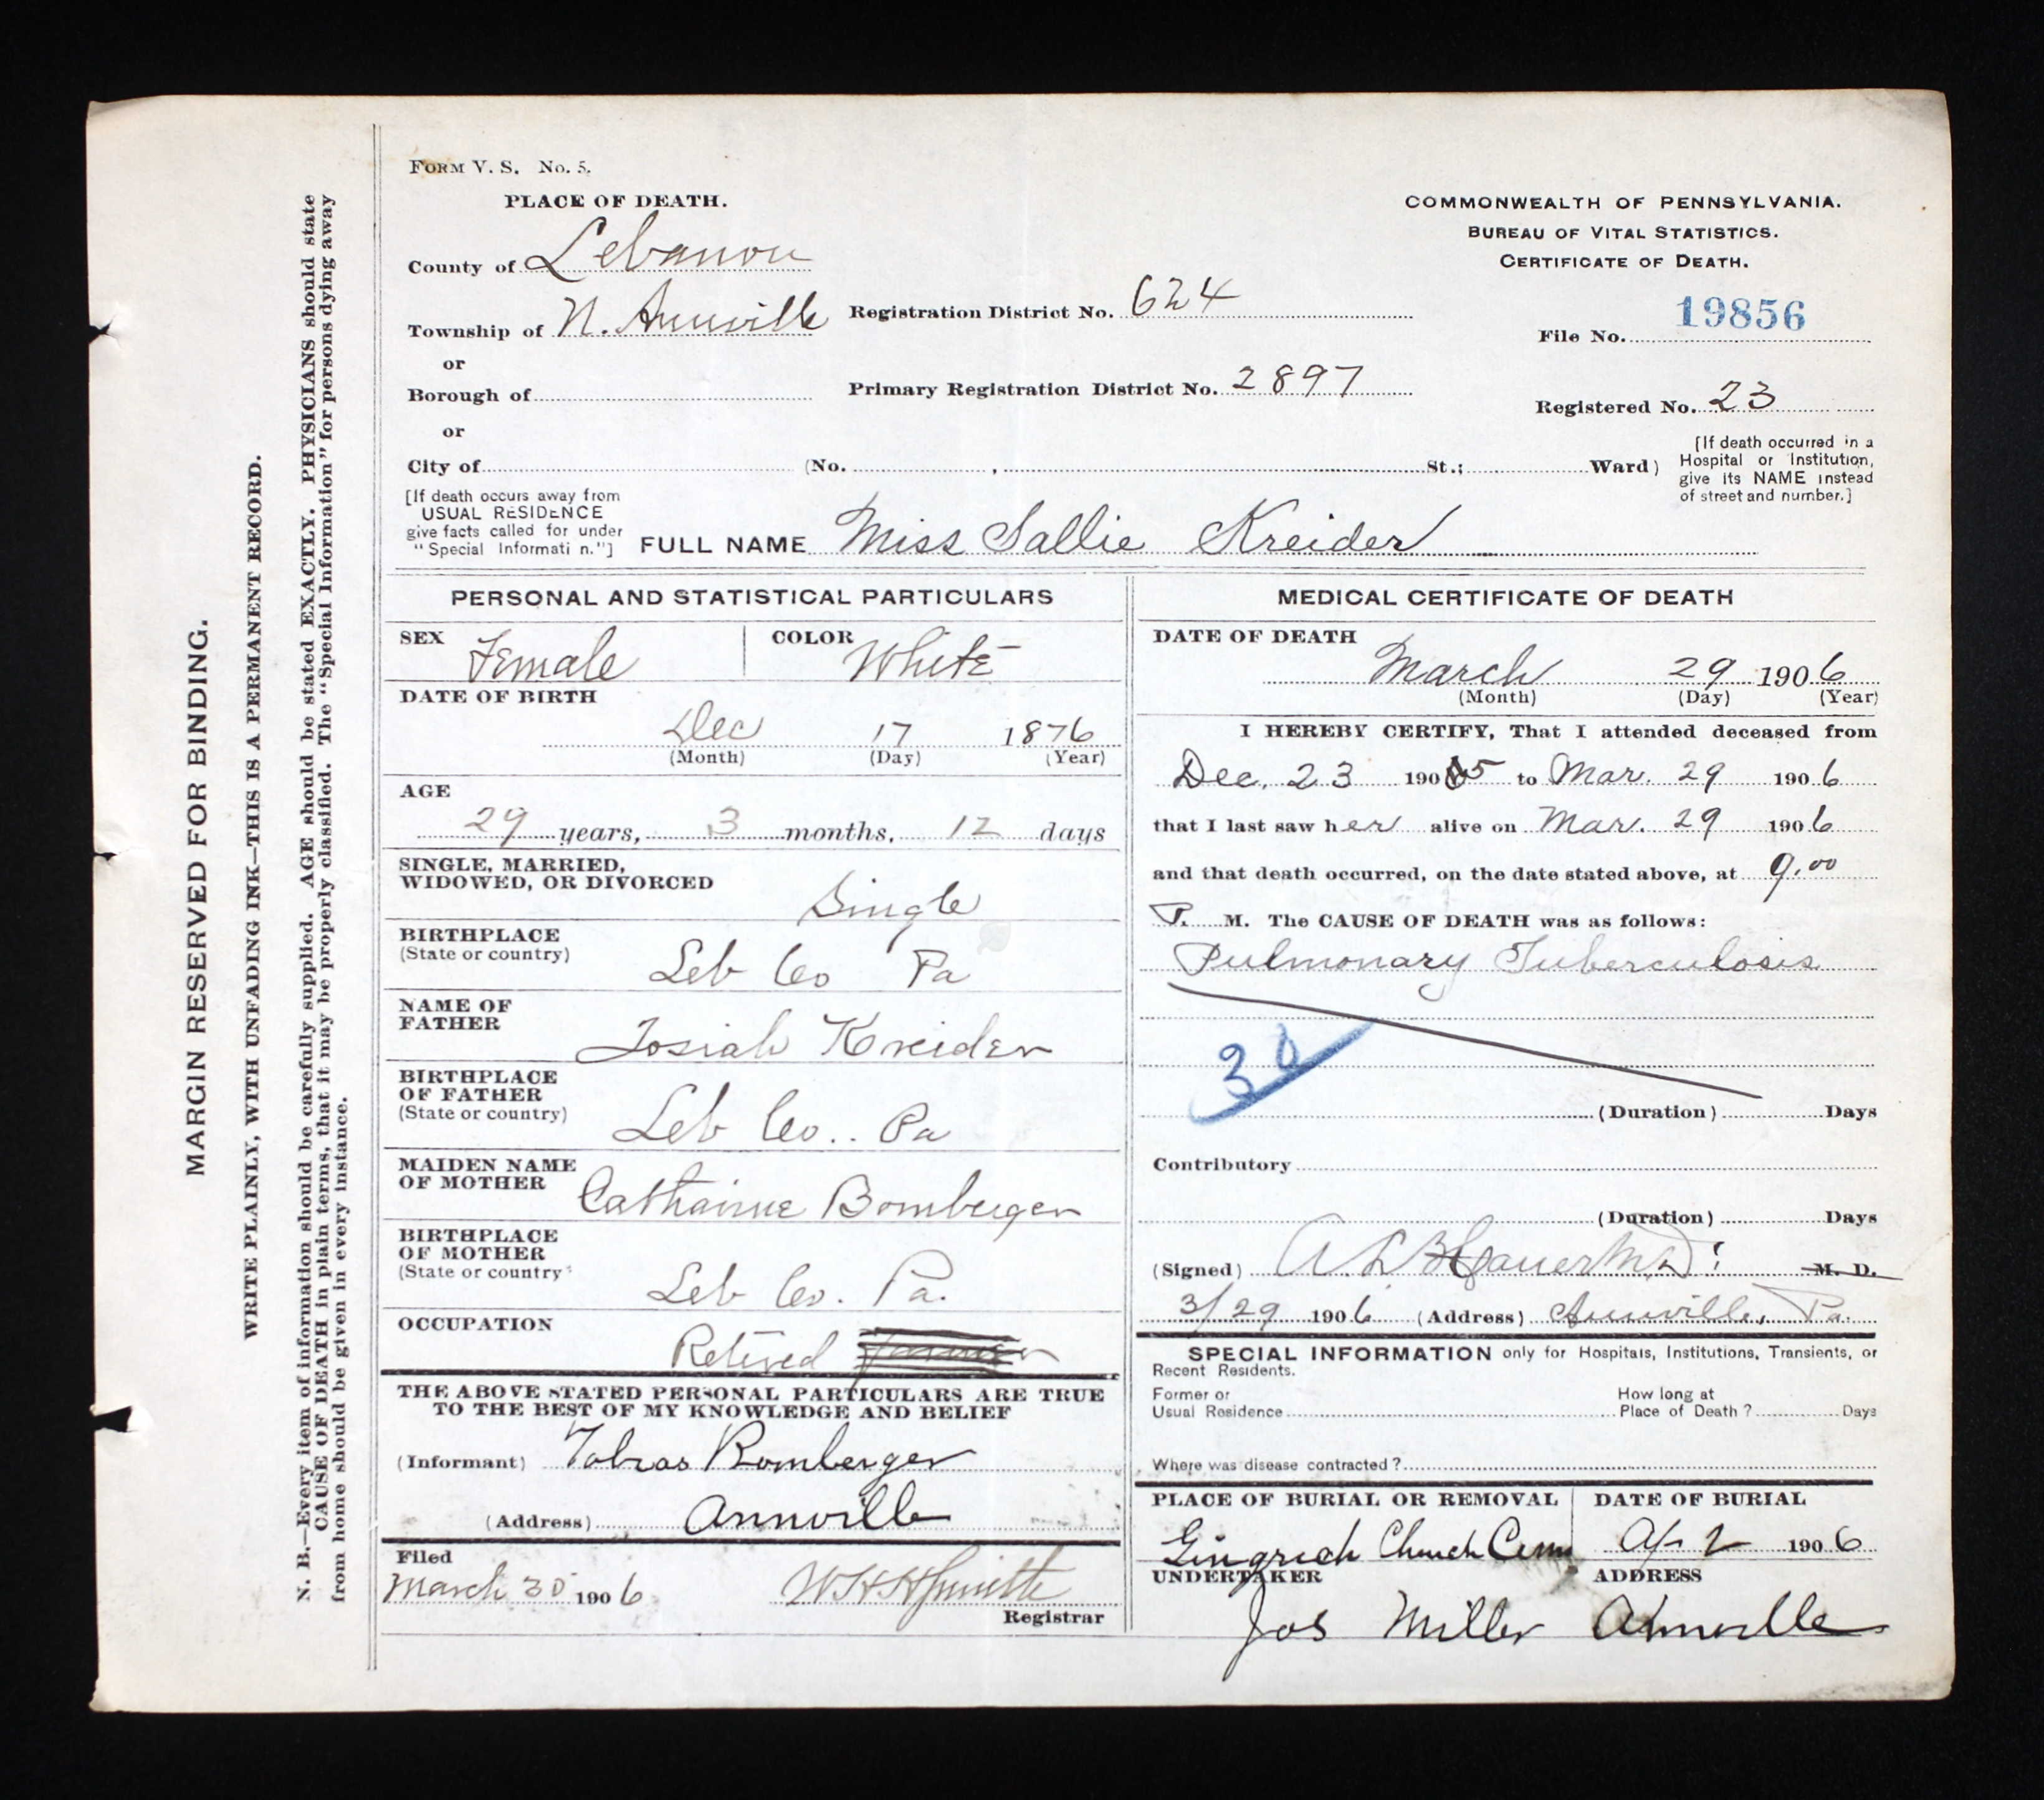 MARGIN RESERVED FOR BINDING.
WRITE PLAINLY, WITH UNFADING INK—THIS IS A PERMANENT RECORD.
N. B.—Every item of information should be carefully supplied. AGE should be stated EXACTLY. PHYSICIANS should state
CAUSE OF DEATH in plain terms, that it may be properly classified. The "Special Information" for persons dying away
from home should be given in every instance.
FORM V. S. No. 5.
PLACE OF DEATH.
County of Lebanon
Township of N. Annville
or
Borough of
or
City of (No. , St.; Ward)
Registration District No. 624
Primary Registration District No. 2897
COMMONWEALTH OF PENNSYLVANIA.
BUREAU OF VITAL STATISTICS.
CERTIFICATE OF DEATH.
File No. 19856
Registered No. 23
[If death occurred in a
Hospital or Institution,
give its NAME instead
of street and number.]
[If death occurs away from
USUAL RESIDENCE
give facts called for under
"Special Informati n."]
FULL NAME Miss Sallie Kreider
PERSONAL AND STATISTICAL PARTICULARS
SEX Female COLOR White
DATE OF BIRTH
Dec 17 1876
(Month) (Day) (Year)
AGE
29 years, 3 months, 12 days
SINGLE, MARRIED,
WIDOWED, OR DIVORCED Single
BIRTHPLACE
(State or country) Leb Co Pa
NAME OF
FATHER Josiah Kreider
BIRTHPLACE
OF FATHER
(State or country) Leb Co.. Pa
MAIDEN NAME
OF MOTHER Cathairne Bomberger
BIRTHPLACE
OF MOTHER
(State or country Leb Co. Pa.
OCCUPATION
Retired
THE ABOVE STATED PERSONAL PARTICULARS ARE TRUE
TO THE BEST OF MY KNOWLEDGE AND BELIEF
(Informant) Tobias Bomberger
(Address) Annville
Filed
March 30 1906
Registrar
MEDICAL CERTIFICATE OF DEATH
DATE OF DEATH
March 29 1906
(Month) (Day) (Year)
I HEREBY CERTIFY, That I attended deceased from
Dec. 23 1905 to Mar. 29 1906
that I last saw her alive on Mar. 29 1906
and that death occurred, on the date stated above, at 9.00
P. M. The CAUSE OF DEATH was as follows:
Pulmonary Tuberculosis
30
(Duration) Days
Contributory
(Duration) Days
(Signed) M. D.
3/29 1906 (Address) Annville, Pa.
SPECIAL INFORMATION only for Hospitals, Institutions, Transients, or
Recent Residents.
Former or
Usual Residence
How long at
Place of Death? Days
Where was disease contracted?
PLACE OF BURIAL OR REMOVAL
Gingrich Church Cem
DATE OF BURIAL
Ap 2 1906
UNDERTAKER
Jos Miller
ADDRESS
Annville